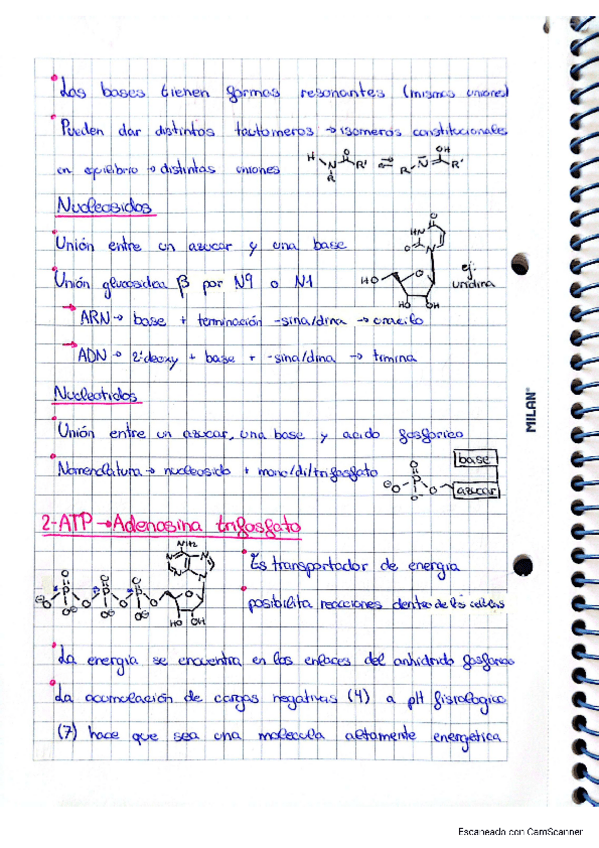 Las bases tienen formas resonantes (mismas uniones)
Pueden dar distintos tautomeros → isomeros constitucionales
en equilibrio → distintas uniones
H N O R' R ⇌ R N OH R'
Nucleosidos
Unión entre un azucar y una base
Unión glucosidica β por N9 o N1
ARN → base + terminación -sina/dina → uracilo
ADN → 2'deoxy + base + -sina/dina → timina
O HN O N HO O HO OH
ej: uridina
Nucleotidos
Unión entre un azucar, una base y acido fosforico
Nomenclatura → nucleosido + mono/di/trifosfato
O P O O O base azucar
MILAN
2-ATP → Adenosina trifosfato
NH2 N N N N O P O O P O O P O O HO OH
Es transportador de energia
posibilita reacciones dentro de las celulas
La energia se encuentra en los enlaces del anhidrido fosforico
La acumulación de cargas negativas (4) a pH fisiologico
(7) hace que sea una molecula altamente energetica
Escaneado con CamScanner